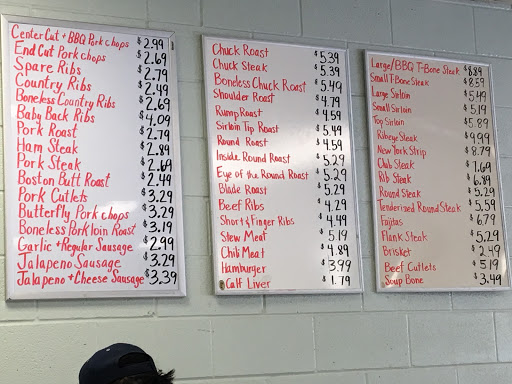 Center Cut + BBQ Pork chops $2.99
End Cut Pork chops $2.69
Spare Ribs $2.79
Country Ribs $2.49
Boneless Country Ribs $2.69
Baby Back Ribs $4.09
Pork Roast $2.79
Ham Steak $2.89
Pork Steak $2.69
Boston Butt Roast $2.49
Pork Cutlets $3.29
Butterfly Pork chops $3.29
Boneless Pork loin Roast $3.19
Garlic + Regular Sausage $2.99
Jalapeno Sausage $3.29
Jalapeno + Cheese Sausage $3.39
Chuck Roast $5.39
Chuck Steak $5.39
Boneless Chuck Roast $5.49
Shoulder Roast $4.79
Rump Roast $4.59
Sirloin Tip Roast $5.49
Round Roast $4.59
Inside Round Roast $5.29
Eye of the Round Roast $5.29
Blade Roast $5.29
Beef Ribs $4.29
Short & Finger Ribs $4.49
Stew Meat $5.19
Chili Meat $4.89
Hamburger $3.99
Calf Liver $1.79
Large/BBQ T-Bone Steak $8.89
Small T-Bone Steak $8.59
Large Sirloin $5.49
Small Sirloin $5.19
Top Sirloin $5.89
Ribeye Steak $9.99
New York Strip $8.79
Club Steak $7.69
Rib Steak $6.89
Round Steak $5.29
Tenderized Round Steak $5.59
Fajitas $6.79
Flank Steak $5.29
Brisket $2.49
Beef Cutlets $5.19
Soup Bone $3.49